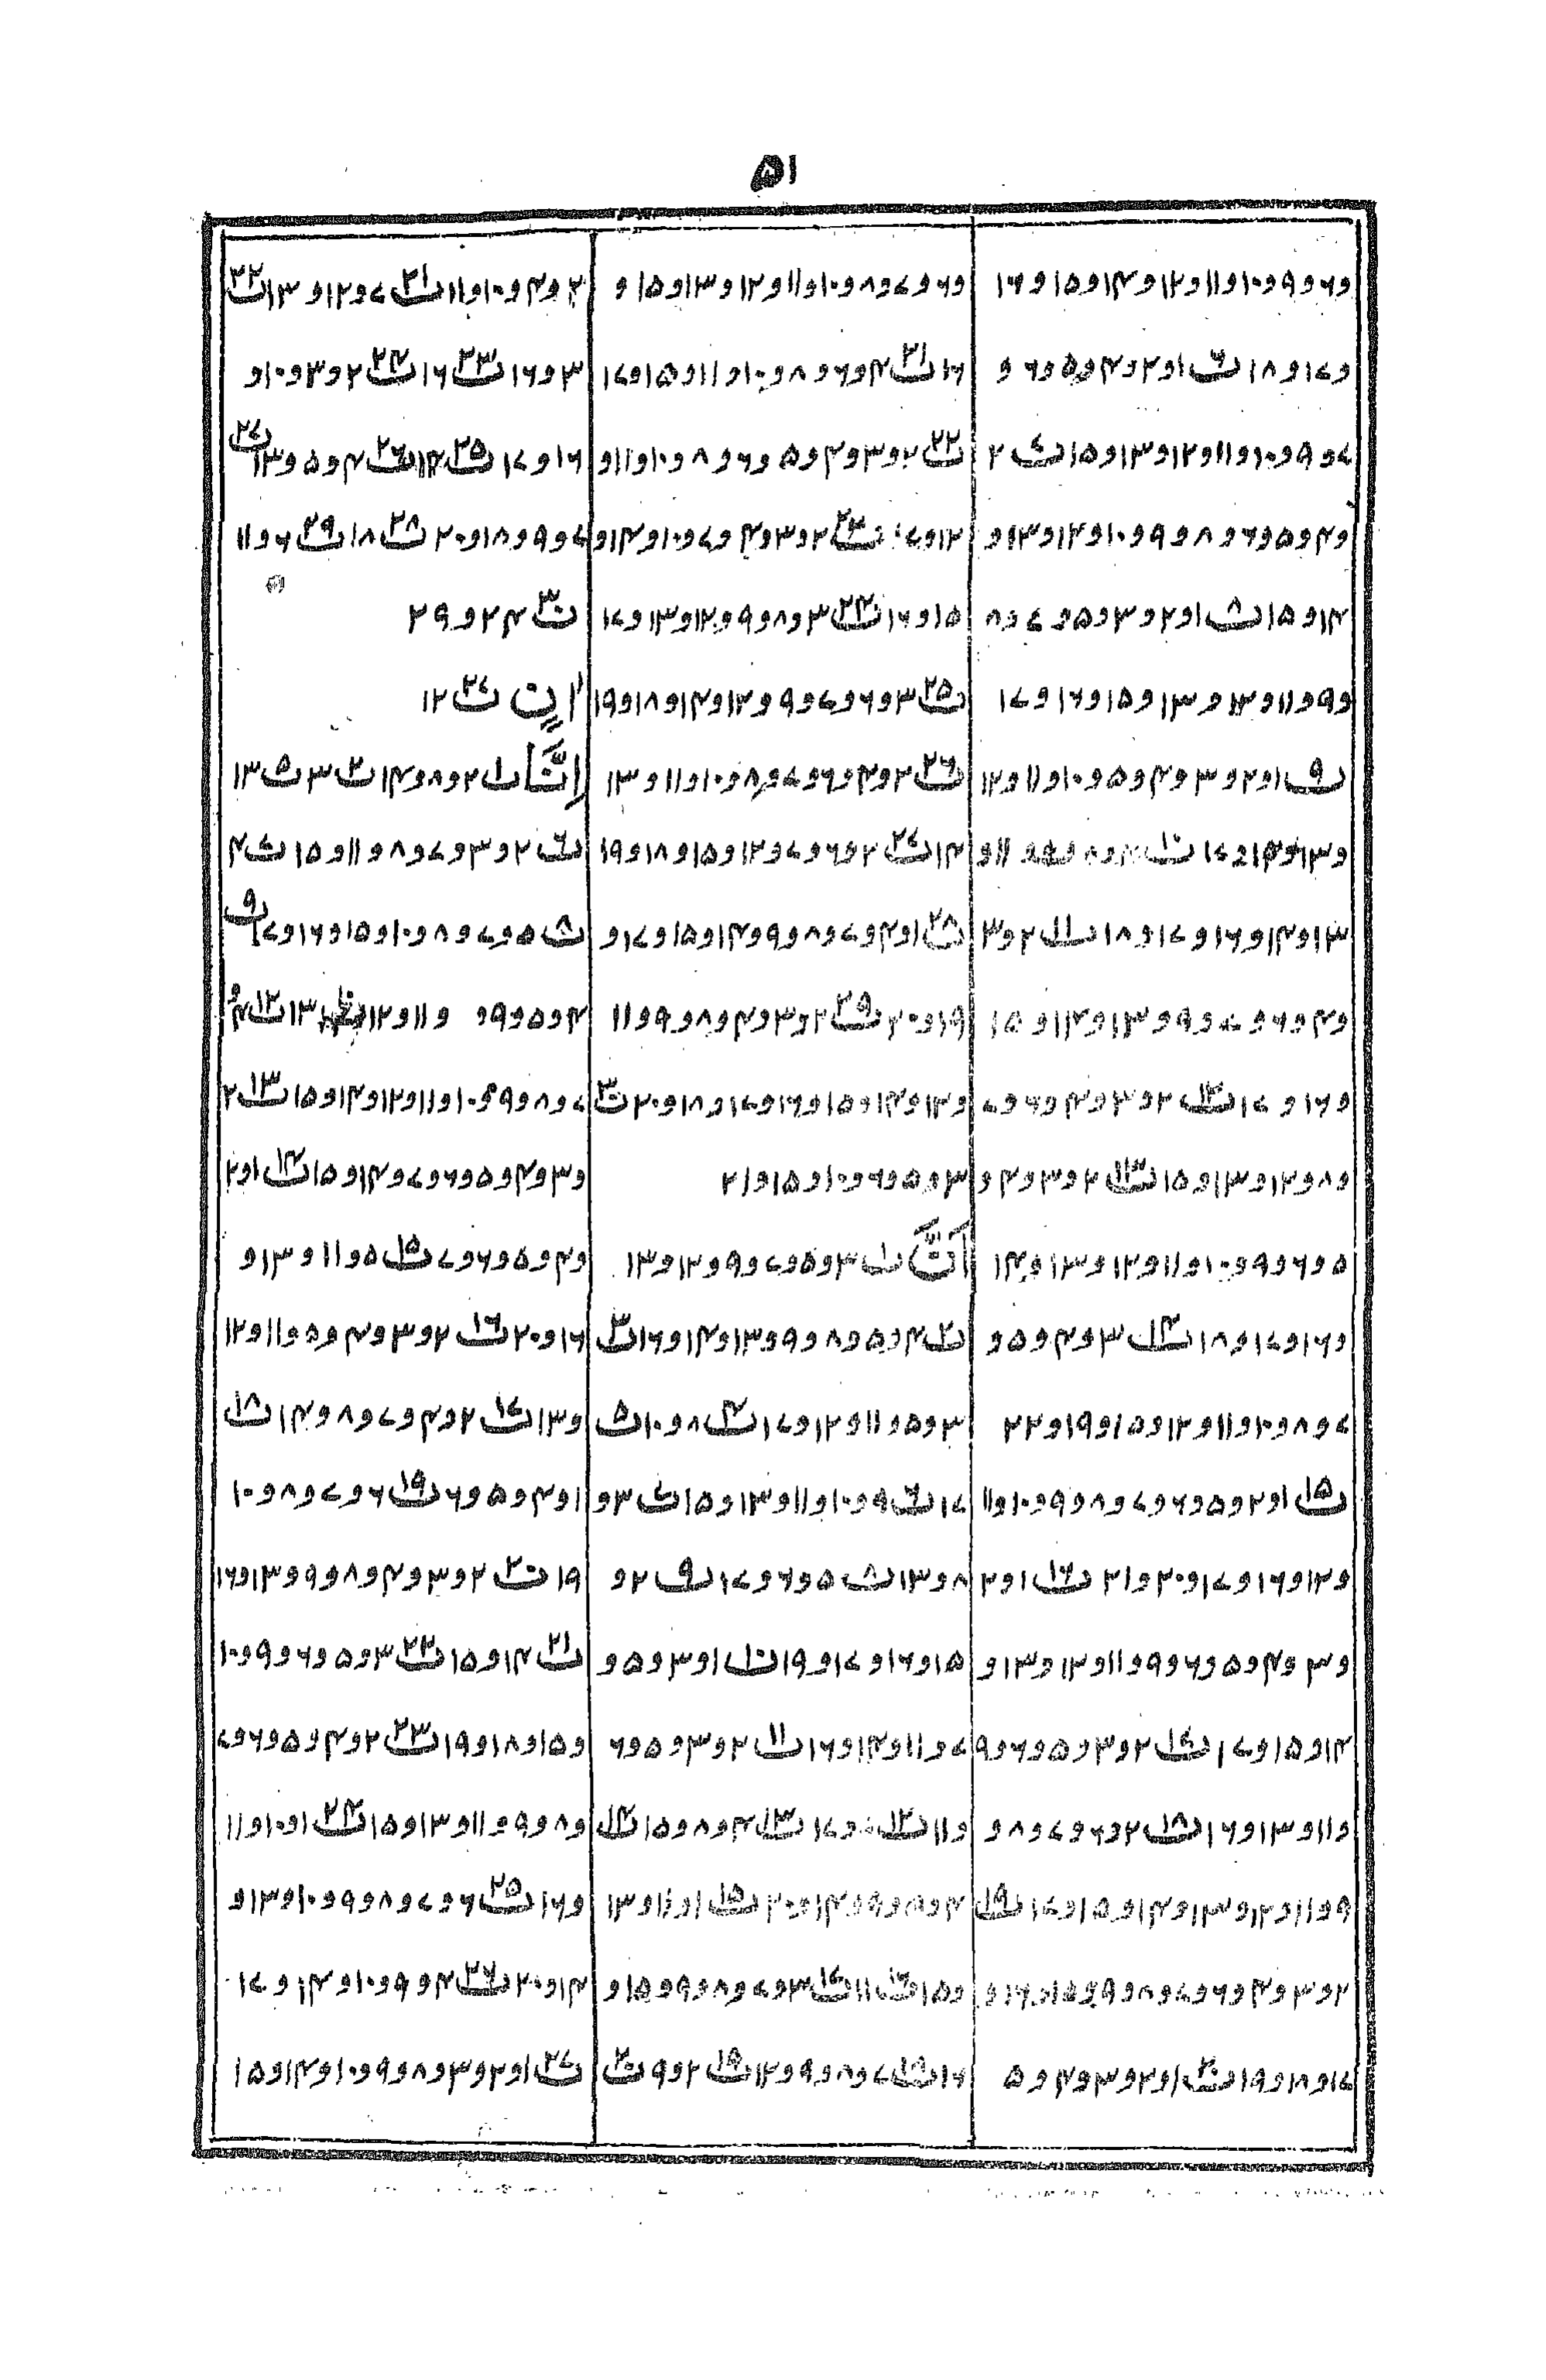 ۵۱
و۶و۹و۱۰و۱۱و۱۲و۱۴و۱۵و۱۶
و۱۷و۱۸ ت۶ ۱و۲و۴و۵و۶و
۷و۹و۱۰و۱۱و۱۲و۱۳و۱۵ ت۷ ۲
و۴و۵و۶و۸و۹و۱۰و۱۲و۱۳و
۱۴و۱۵ ت۸ ۱و۲و۳و۵و۷و۸
و۹و۱۱و۱۲و۱۳و۱۵و۱۶و۱۷
ت۹ ۱و۲و۳و۴و۵و۱۰و۱۱و۱۲
و۱۳و۱۴و۱۷ ت۱۰ و۱۱و
۱۳و۱۴و۱۶و۱۷و۱۸ ت۱۱ ۲و۳
و۴و۶و۷و۹و۱۳و۱۴و۱۵
و۱۶و۱۷ ت۱۲ ۲و۳و۴و۶و۷
و۸و۱۲و۱۳و۱۵ ت۱۳ ۲و۳و۴و
۵و۶و۹و۱۰و۱۱و۱۲و۱۳و۱۴
و۱۶و۱۷و۱۸ ت۱۴ ۳و۴و۵و
۷و۸و۱۰و۱۱و۱۲و۱۵و۱۹و۲۲
ت۱۵ ۱و۲و۵و۶و۷و۸و۹و۱۰و۱۱
و۱۲و۱۶و۱۷و۲۰و۲۱ ت۱۶ ۱و۲
و۳و۴و۵و۶و۹و۱۱و۱۲و۱۳و
۱۴و۱۵و۱۷ ت۱۷ ۲و۳و۵و۶و۹
و۱۱و۱۳و۱۶ ت۱۸ ۲و۶و۷و۸و
۹و۱۱و۱۲و۱۳و۱۴و۱۵و۱۷ ت۱۹
۲و۳و۴و۶و۷و۸و۹و۱۵و۱۶و
۱۷و۱۸و۱۹ ت۲۰ ۱و۲و۳و۴و۵
و۶و۷و۸و۱۰و۱۱و۱۲و۱۳و۱۵و
۱۶ ت۲۱ ۴و۶و۸و۱۰و۱۱و۱۵و۱۷
ت۲۲ ۲و۳و۴و۵و۶و۸و۱۰و۱۱و
۱۲و۱۷ ت۲۳ ۲و۳و۴و۷و۱۰و۱۴و
۱۵و۱۶ ت۲۴ ۳و۸و۹و۱۲و۱۳و۱۷
ت۲۵ ۳و۶و۷و۹و۱۲و۱۴و۱۸و۱۹
ت۲۶ ۲و۴و۶و۷و۸و۱۰و۱۱و۱۳
۱۴ ت۲۷ ۲و۶و۷و۱۲و۱۵و۱۸و۱۹
ت۲۸ ۱و۴و۷و۸و۹و۱۴و۱۵و۱۷و
۱۹و۲۰ ت۲۹ ۲و۳و۴و۸و۹و۱۱
و۱۲و۱۴و۱۵و۱۶و۱۷و۱۸و۲۰ ت۳۰
۳و۵و۶و۱۰و۱۵و۲۱
اَنَّ ت۱ ۳و۵و۷و۹و۱۲و۱۳
ت۲ ۴و۵و۸و۹و۱۳و۱۴و۱۶ ت۳
۳و۵و۱۱و۱۲و۱۷ ت۴ ۸و۱۰ ت۵
۱۷ ت۶ ۹و۱۰و۱۱و۱۳و۱۵ ت۷ ۳و
۸و۱۳ ت۸ ۵و۶و۱۷ ت۹ ۲و
۱۵و۱۶و۱۷و۱۹ ت۱۰ ۱و۳و۵و
۷و۱۱و۱۴و۱۶ ت۱۱ ۲و۳و۵و۶
و۱۱ ت۱۲ و۱۷ ت۱۳ ۴و۸و۱۵ ت۱۴
۴و۸و۹و۱۴و۲۰ ت۱۵ ۱و۱۱و۱۳
و۱۵ ت۱۶ ۱۱ ت۱۷ ۳و۷و۸و۹و۱۵و
۱۶ ت۱۸ ۷و۸و۹و۱۲ ت۱۹ ۲و۹ ت۲۰
۲و۴و۱۰و۱۱ ت۲۱ ۷و۱۲و۱۳ ت۲۲
۳و۱۶ ت۲۳ ۱۶ ت۲۴ ۲و۳و۱۰و
۱۶و۱۷ ت۲۵ ۱۴ ت۲۶ ۴و۵و۱۳ ت۲۷
۷و۹و۱۸و۲۰ ت۲۸ ۱۸ ت۲۹ ۶و۱۱
ت۳۰ ۴و۲و۲۹
اٰین ت۲۷ ۱۲
اِنَّا ت۱ ۲و۸و۱۴ ت۲ ۳ ت۵ ۱۳
ت۶ ۲و۳و۷و۸و۱۱و۱۵ ت۷ ۴
ت۸ ۵و۷و۸و۱۰و۱۵و۱۶و۱۷ ت۹
۴و۵و۹و و۱۱و۱۲ ۱۳ ت۱۲ ۴و
۷و۸و۹و۱۰و۱۱و۱۲و۱۴و۱۵ ت۱۳ ۲
و۳و۴و۵و۶و۷و۱۴و۱۵ ت۱۴ ۱و۲
و۴و۵و۶و۷ ت۱۵ ۵و۱۱و۱۳و
۱۶و۲۰ ت۱۶ ۲و۳و۴و۵و۱۱و۱۲
و۱۳ ت۱۷ ۲و۴و۷و۸و۱۴ ت۱۸
۱و۴و۵و۶ ت۱۹ ۶و۷و۸و۱۰
۱۹ ت۲۰ ۲و۳و۴و۸و۹و۱۳و۱۶
ت۲۱ ۱۴و۱۵ ت۲۲ ۳و۵و۶و۹و۱۰
و۱۵و۱۸و۱۹ ت۲۳ ۲و۴و۵و۶و۷
و۸و۹و۱۱و۱۳و۱۵ ت۲۴ ۱و۱۰و۱۱
و۱۶ ت۲۵ ۶و۷و۸و۹و۱۰و۱۳و
۱۴و۲۰ ت۲۶ ۴و۹و۱۰و۱۴و۱۷
ت۲۷ ۱و۲و۳و۸و۹و۱۰و۱۴و۱۵